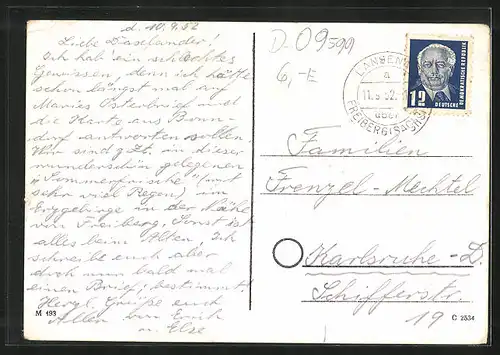 d. 10.9.52
Liebe Baselander!
Ich hab ein schlechtes
Gewissen, denn ich hätte
schon längst mal auf
Maries Osterbrief und
die Karte aus Bonn-
dorf antworten sollen.
Wir sind z.Zt. in dieser
wunderschön gelegenen
Sommerfrische (mit
sehr viel Regen) im
Erzgebirge in der Nähe
von Freiberg. Sonst ist
alles beim Alten. Ich
schreibe euch aber
doch nun bald mal
einen Brief, bestimmt.
Herzl. Grüße euch
Allen von Erich
u. Else
M 193
D-09599
6,-E
LANGEN
a
11.
über
FREIBERG (SACHS)
12
DEUTSCHE
DEMOKRATISCHE REPUBLIK
Familien
Frenzel-Mechtel
Karlsruhe-D.
Schifferstr.
19
C 2534